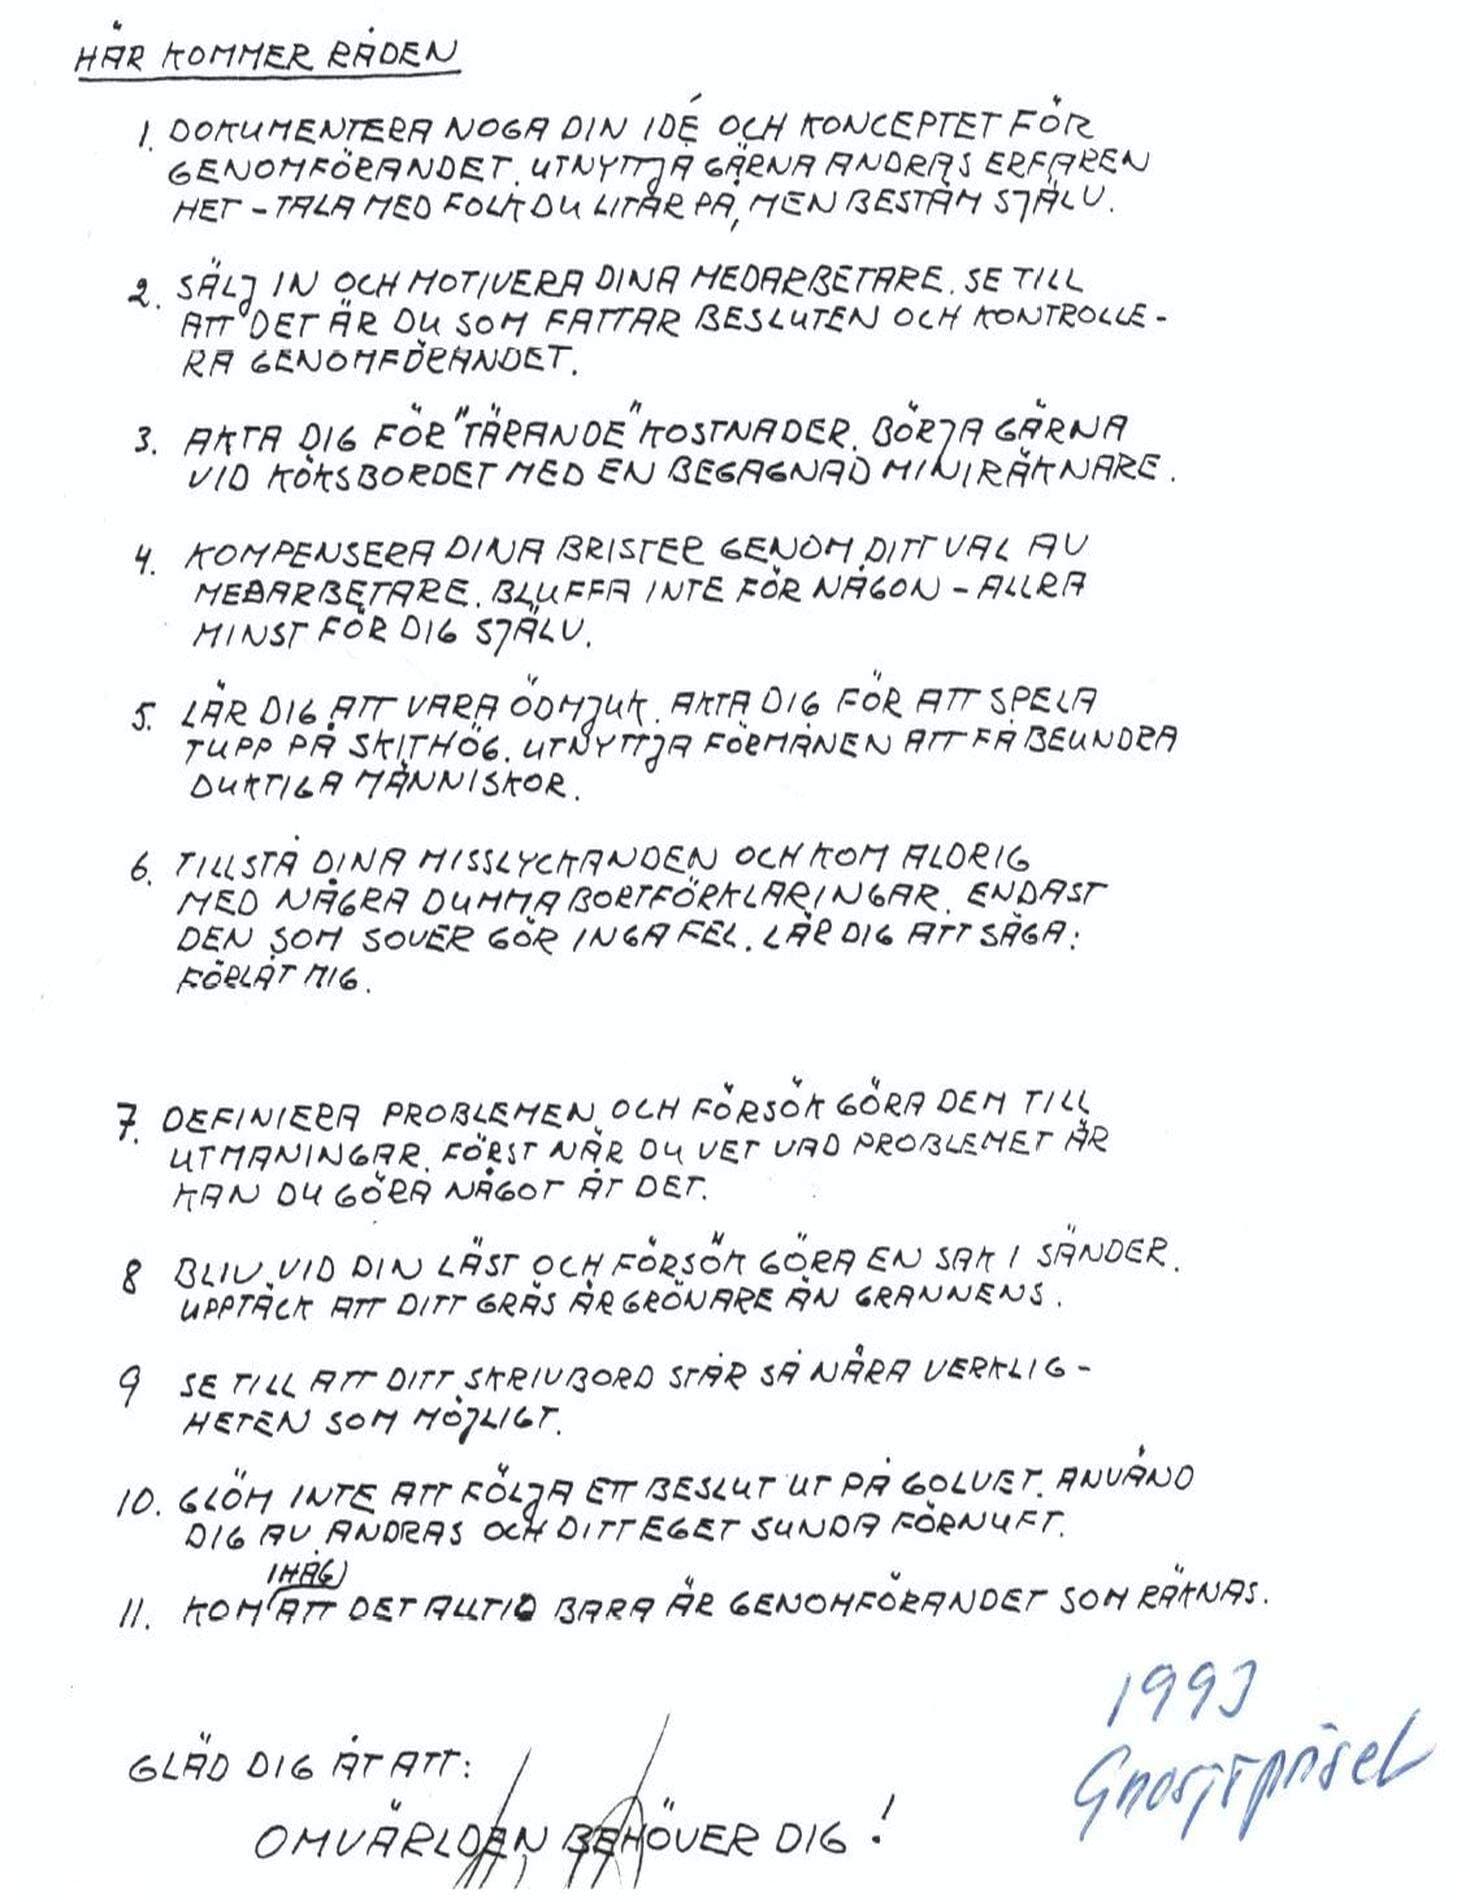 HÄR KOMMER RÅDEN
1. DOKUMENTERA NOGA DIN IDÉ OCH KONCEPTET FÖR
GENOMFÖRANDET. UTNYTTJA GÄRNA ANDRAS ERFAREN
HET - TALA MED FOLK DU LITAR PÅ, MEN BESTÄM SJÄLV.
2. SÄLJ IN OCH MOTIVERA DINA MEDARBETARE. SE TILL
ATT DET ÄR DU SOM FATTAR BESLUTEN OCH KONTROLLE-
RA GENOMFÖRANDET.
3. AKTA DIG FÖR "TÄRANDE" KOSTNADER. BÖRJA GÄRNA
VID KÖKSBORDET MED EN BEGAGNAD MINIRÄKNARE.
4. KOMPENSERA DINA BRISTER GENOM DITT VAL AV
MEDARBETARE. BLUFFA INTE FÖR NÅGON - ALLRA
MINST FÖR DIG SJÄLV.
5. LÄR DIG ATT VARA ÖDMJUK. AKTA DIG FÖR ATT SPELA
TUPP PÅ SKITHÖG. UTNYTTJA FÖRMÅNEN ATT FÅ BEUNDRA
DUKTIGA MÄNNISKOR.
6. TILLSTÅ DINA MISSLYCKANDEN OCH KOM ALDRIG
MED NÅGRA DUMMA BORTFÖRKLARINGAR. ENDAST
DEN SOM SOVER GÖR INGA FEL. LÄR DIG ATT SÄGA:
FÖRLÅT MIG.
7. DEFINIERA PROBLEMEN OCH FÖRSÖK GÖRA DEM TILL
UTMANINGAR. FÖRST NÄR DU VET VAD PROBLEMET ÄR
KAN DU GÖRA NÅGOT ÅT DET.
8 BLIV VID DIN LÄST OCH FÖRSÖK GÖRA EN SAK I SÄNDER.
UPPTÄCK ATT DITT GRÄS ÄR GRÖNARE ÄN GRANNENS.
9 SE TILL ATT DITT SKRIVBORD STÅR SÅ NÄRA VERKLIG-
HETEN SOM MÖJLIGT.
10. GLÖM INTE ATT FÖLJA ETT BESLUT UT PÅ GOLVET. ANVÄND
DIG AV ANDRAS OCH DITT EGET SUNDA FÖRNUFT.
IHÅG
11. KOM ATT DET ALLTID BARA ÄR GENOMFÖRANDET SOM RÄKNAS.
1993
GLÄD DIG ÅT ATT:
OMVÄRLDEN BEHÖVER DIG!